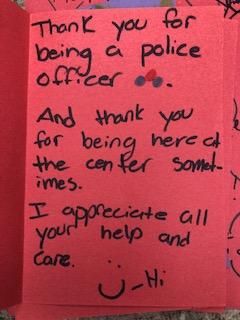 Thank you for
being a police
officer .
And thank you
for being here at
the center somet-
imes.
I appreciate all
your help and
care.
- Hi